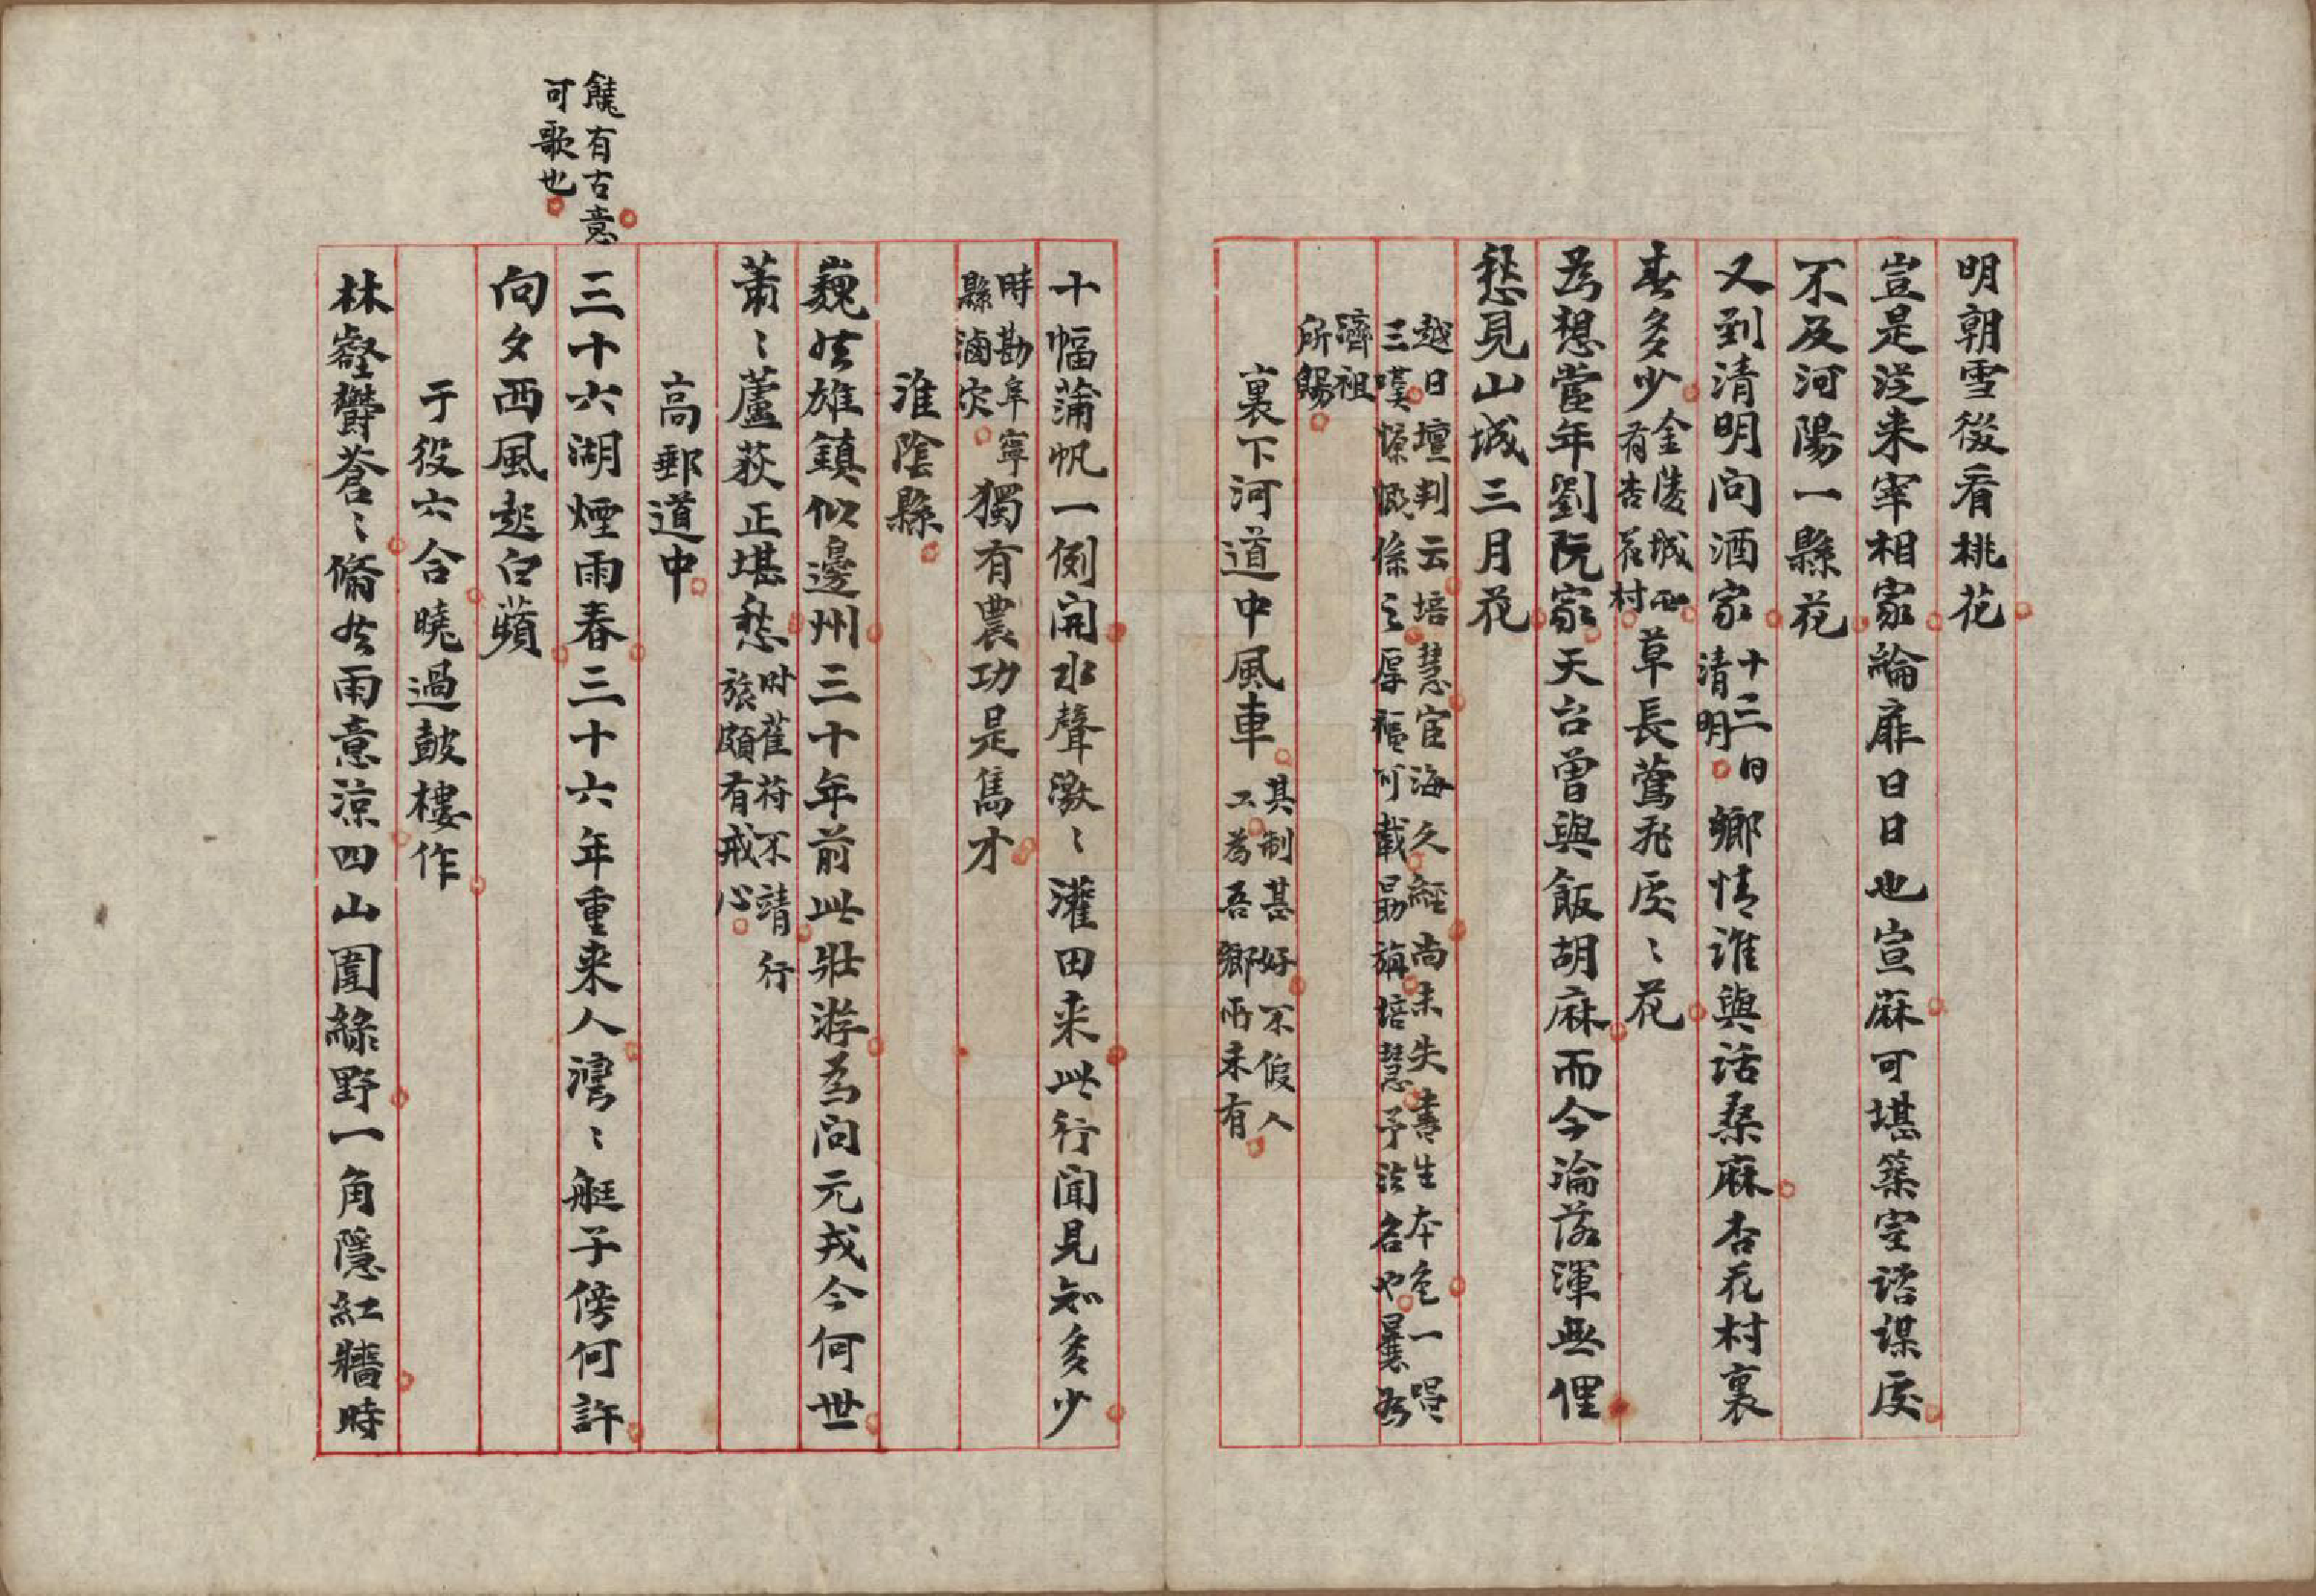 明朝雪後看桃花
豈是從来宰相家綸扉日日也宣蔴可堪築室謀處
不及河陽一縣花
又到清明问酒家十三日清明鄉情誰與话桑麻杏花村裏
春多少金陵城西有杏花村草長鶯飛處〻花
為想當年劉阮家天台曾與飯胡麻而今淪落渾無俚
愁見山城三月花
越日壇判云培慧宦海久經尚未失書生本色一唱
三嘆慷慨係之厚福可載勗旃培慧予法名也曩為
濟祖
所賜
裏下河道中風車其制甚好不假人工為吾鄉所未有
十幅蒲帆一例開水聲激〻灌田来此行闻見知多少
時勘阜寧縣滷灾獨有農功是雋才
淮陰縣
巍然雄鎮似邊州三十年前此壯游為问元戎今何世
萧〻蘆荻正堪愁时萑苻不靖行旅頗有戒心
高郵道中
饒有古意
可歌也
三十六湖煙雨春三十六年重来人灣〻艇子傍何許
向夕西風起白蘋
于役六合曉過鼓樓作
林壑欝蒼〻翛然雨意涼四山圍綠野一角隱紅牆時